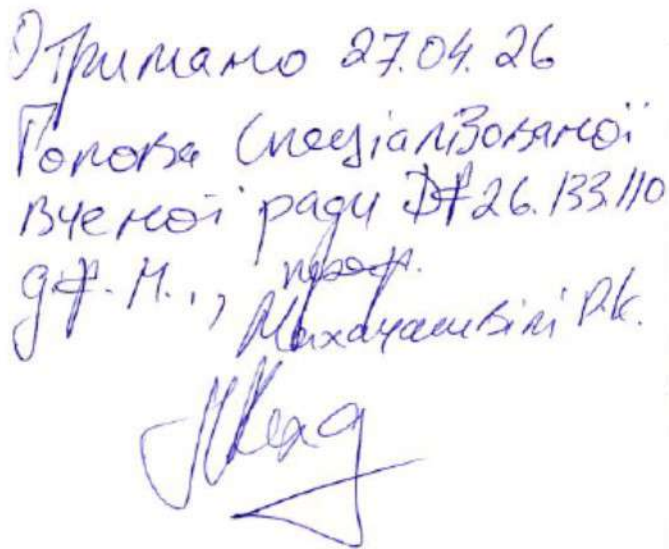 Отримано 27.04.26
Голова Спеціалізованої
вченої ради ДФ 26.133.110
д.ф.н., проф.
Махачашвілі Р.К.